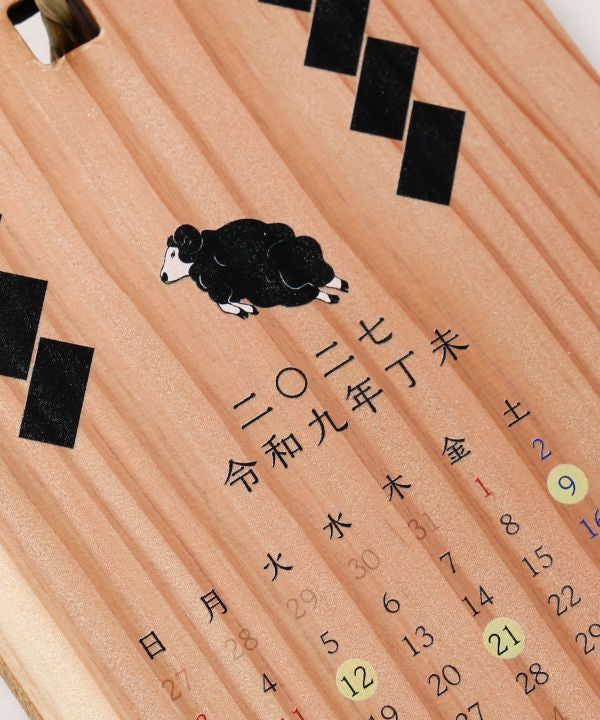 二〇二七
令和九年丁未
日 月 火 水 木 金 土
27 28 29 30 31 1 2
4 5 6 7 8 9
11 12 13 14 15 16
19 20 21 22
27 28 29